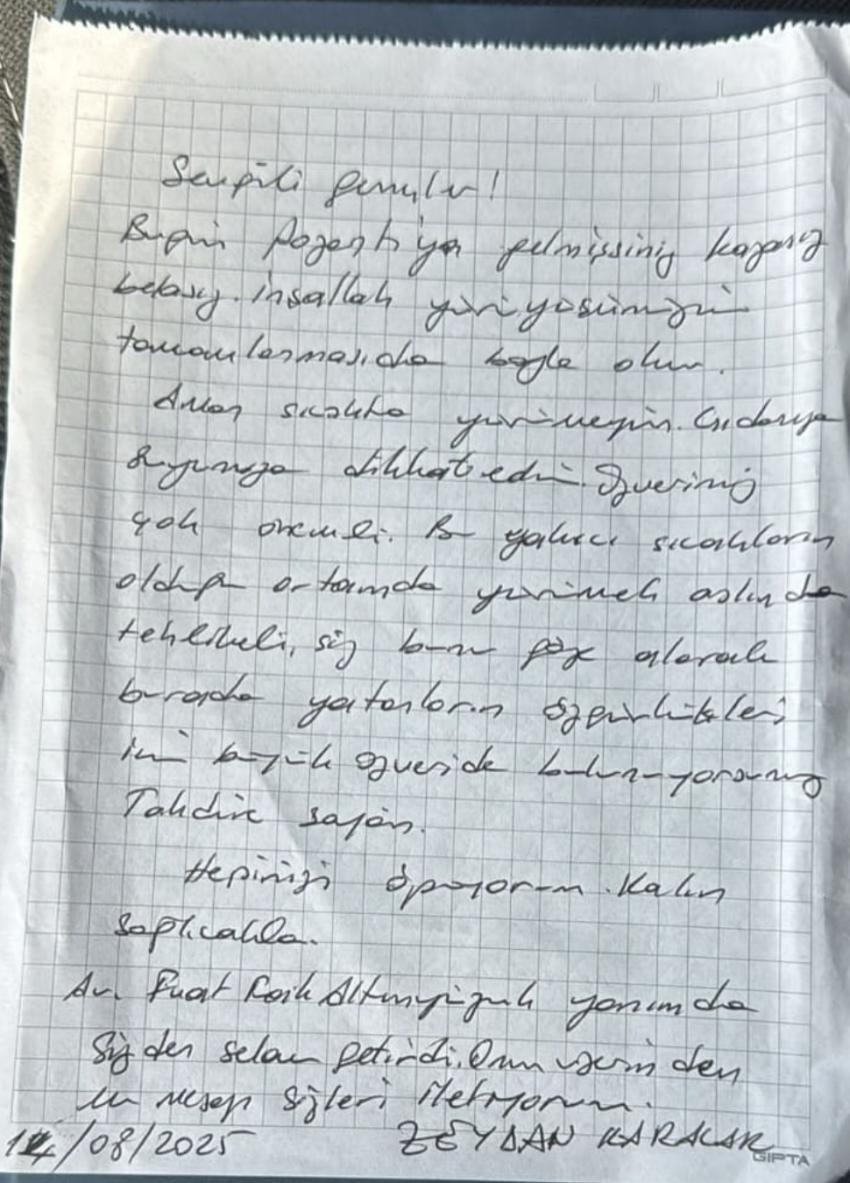 Sevgili gençler!
Bugün Pozantı'ya gelmişsiniz kazasız
belasız. inşallah yürüyüşünüzün
tamamlanmasıda böyle olur.
Aman sıcakta yürümeyin. Gıdanıza
suyunuza dikkat edin. Özveriniz
çok önemli. Bu yakıcı sıcakların
olduğu ortamda yürümek aslında
tehlikeli, siz bunu göze alarak
burada yatanların özgürlükleri
için büyük özveride bulunuyorsunuz
Takdire şayan.
Hepinizi öpüyorum. Kalın
sağlıcakla.
Av. Fuat yanımda
Sizden selam getirdi. Onun üzerinden
bu mesajı sizlere iletiyorum.
14/08/2025 ZEYDAN KARALAR
GIPTA